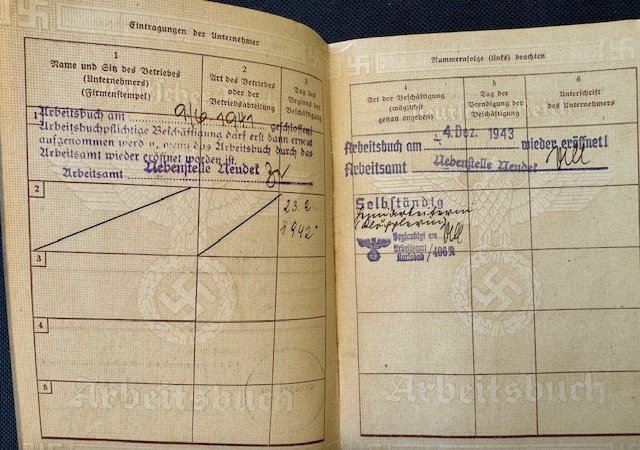 Eintragungen der Unternehmer
1
Name und Sitz des Betriebes
(Unternehmers)
(Firmenstempel)
2
Art des Betriebes
oder der
Betriebsabteilung
3
Tag des
Beginns der
Beschäftigung
1
Arbeitsbuch am 9/6. 1941 geschlossen!
Arbeitsbuchpflichtige Beschäftigung darf erst dann erneut
aufgenommen werd n, wenn das Arbeitsbuch durch das
Arbeitsamt wieder eröffnet worden ist.
Arbeitsamt Nebenstelle Neudek
2
23. 2.
1942
3
4
5
Arbeitsbuch
Nummernfolge (links) beachten
4
Art der Beschäftigung
(möglichst
genau angeben)
5
Tag der
Beendigung der
Beschäftigung
6
Unterschrift
des Unternehmers
Arbeitsbuch am - 4. Dez. 1943 wieder eröffnet!
Arbeitsamt Nebenstelle Neudek
Selbständig
(Klöpplerin)
Beglaubigt am
Arbeitsamt
Karlsbad /406
Arbeitsbuch